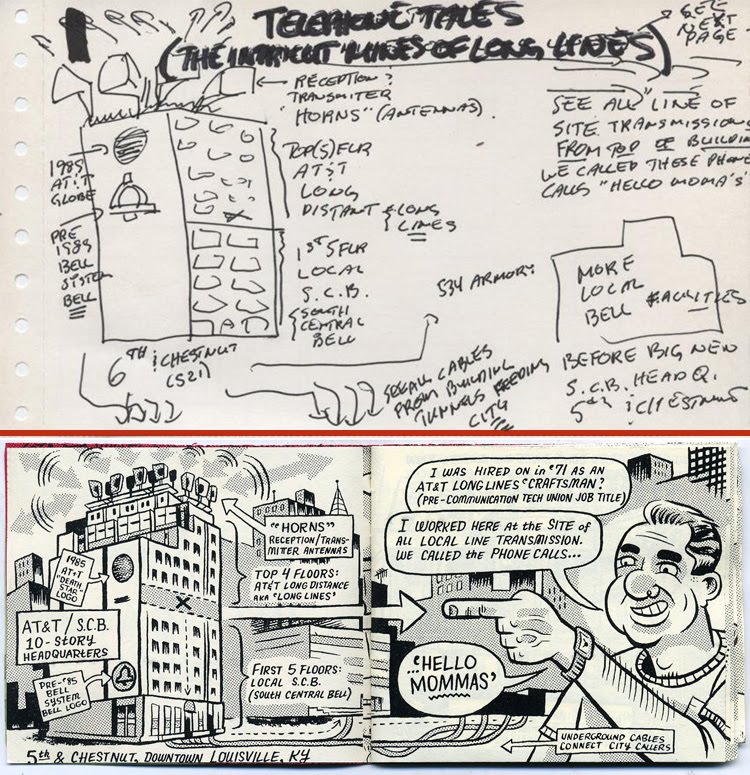 TELEPHONE TALES
(THE INTRICUT LINES OF LONG LINES)
SEE
NEXT
PAGE
RECEPTION ?
TRANSMITER
"HORNS" (ANTENNAS).
SEE ALL "LINE OF
SITE TRANSMISSION
FROM TOP OF BUILDIN
WE CALLED THESE PHONE
CALLS "HELLO MOMA'S"
1985
AT&T
GLOBE
PRE
1985
BELL
SYSTEM
BELL
TOP(5)FLR
AT&T
LONG
DISTANT & LONG
LINES
1ST 5 FLR
LOCAL
S.C.B.
SOUTH
CENTRAL
BELL
534 ARMORY:
MORE
LOCAL
BELL FACILITIES
6TH & CHESTNUT
(521)
SEE ALL CABLES
FROM BUILDING
TUNNELS FEEDING
CITY
BEFORE BIG NEW
S.C.B. HEAD Q.
5TH & CHESTNUT
"HORNS"
RECEPTION/TRANS-
MITER ANTENNAS
1985
AT&T
"DEATH
STAR"
LOGO
TOP 4 FLOORS:
AT&T LONG DISTANCE
AKA "LONG LINES"
AT&T / S.C.B.
10-STORY
HEADQUARTERS
PRE-'85
BELL
SYSTEM
BELL LOGO
FIRST 5 FLOORS:
LOCAL S.C.B.
(SOUTH CENTRAL BELL)
5th & CHESTNUT, DOWNTOWN LOUISVILLE, KY
I WAS HIRED ON in '71 AS AN
AT&T LONG LINES "CRAFTSMAN"
(PRE-COMMUNICATION TECH UNION JOB TITLE)
I WORKED HERE At the SITE of
ALL LOCAL LINE TRANSMISSION.
WE CALLED the PHONE CALLS...
..."HELLO
MOMMAS"
UNDERGROUND CABLES
CONNECT CITY CALLERS